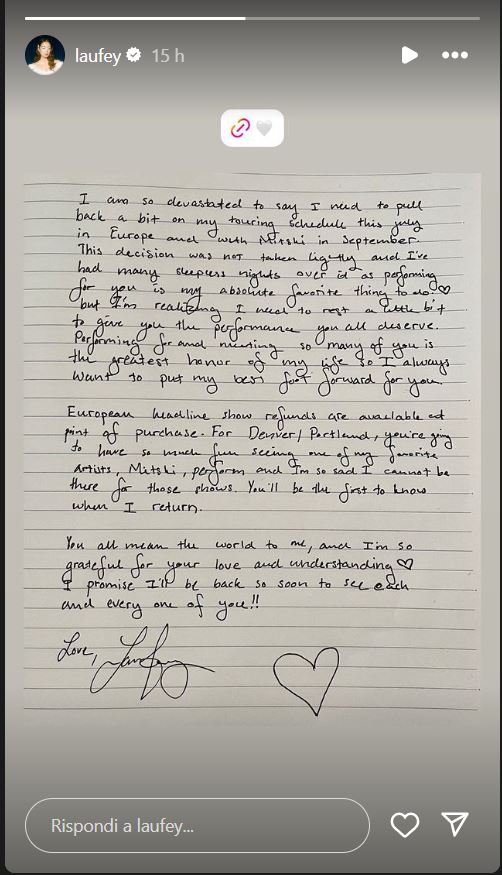 laufey 15 h
I am so devastated to say I need to pull
back a bit on my touring schedule this july
in Europe and with Mitski in September.
This decision was not taken lightly and I've
had many sleepless nights over it as performing
for you is my absolute favorite thing to do♡
but I'm realizing I need to rest a little bit
to give you the performance you all deserve.
Performing for and meeting so many of you is
the greatest honor of my life so I always
want to put my best foot forward for you.
European headline show refunds are available at
point of purchase. For Denver/Portland, you're going
to have so much fun seeing one of my favorite
artists, Mitski, perform and I'm so sad I cannot be
there for those shows. You'll be the first to know
when I return.
You all mean the world to me, and I'm so
grateful for your love and understanding♡
I promise I'll be back so soon to see each
and every one of you!!
Love, Laufey
Rispondi a laufey...